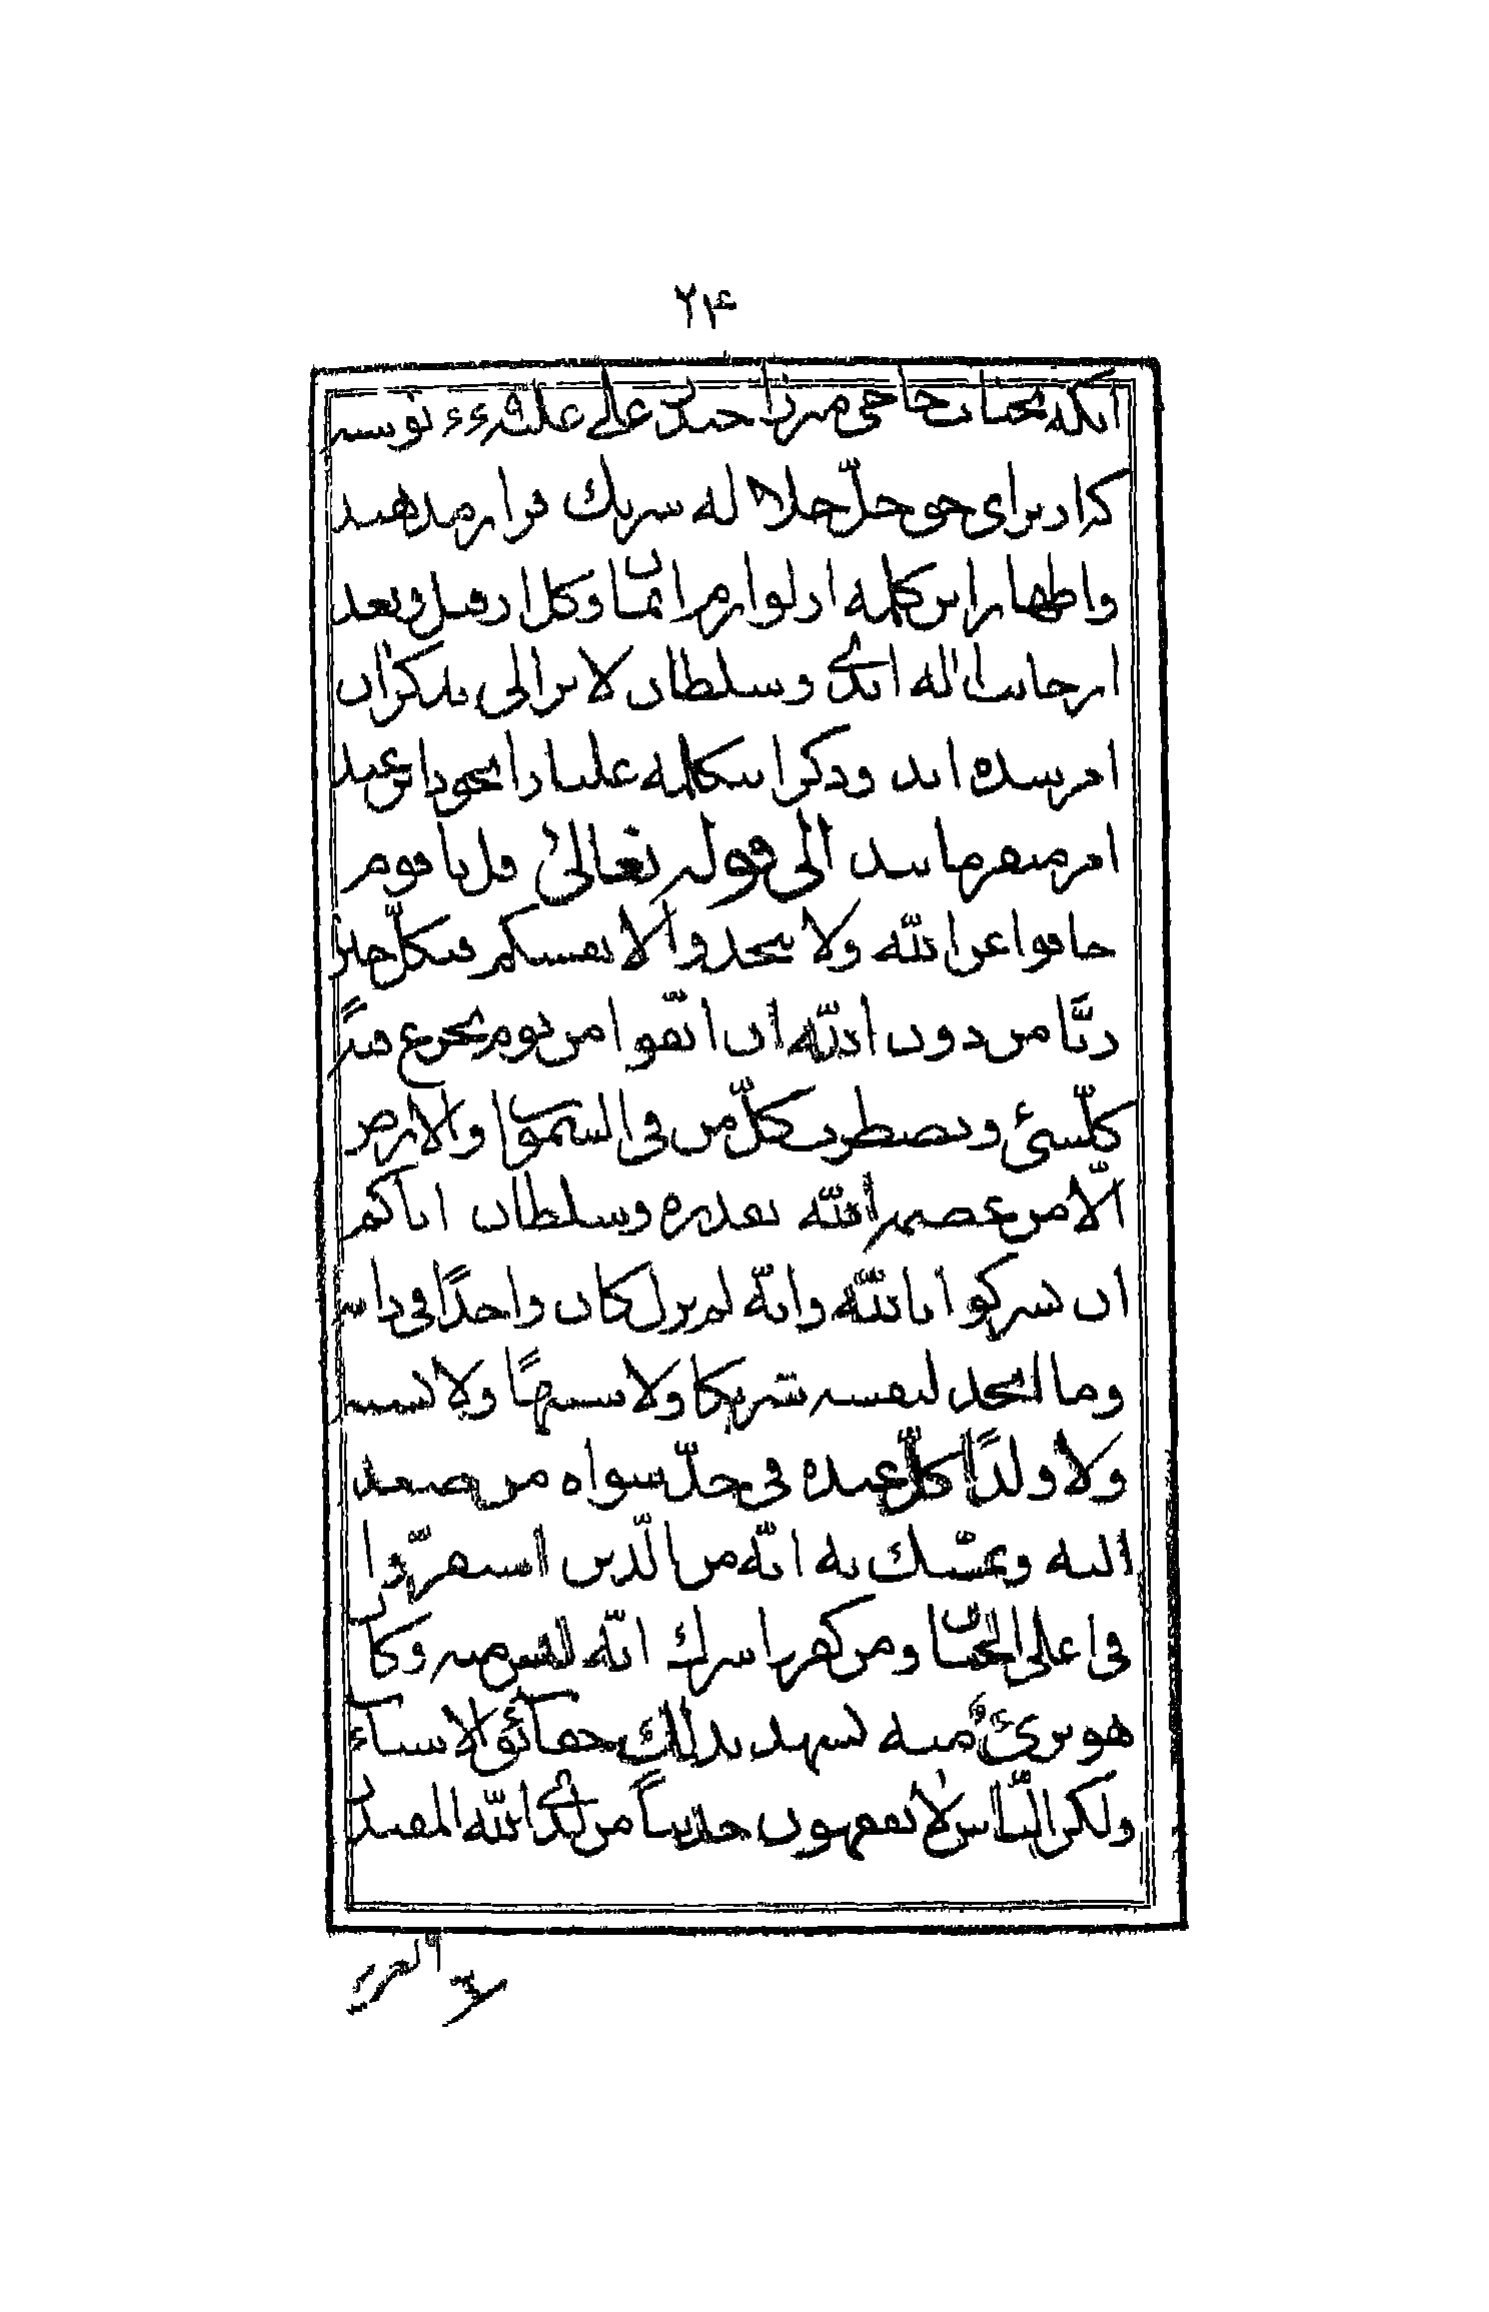 ۲۴
آنکه بجناب حاجی میرزا حیدر علی علیه ۶۶۹ بنویسید
که از برای حق جلّ جلاله شریک قرار مدهید
و اظهار این کلمه از لوازم ایمان و کل از قبل و بعد
از جانب اله ابدی و سلطان لایزالی بذکر آن
امر شده اند و ذکر این کلمه علیا را بخود این عبد
امر میفرمایند الی قوله تعالی قل یا قوم
خافوا عن الله ولا تتخذوا لانفسکم فی کلّ حین
ربّا من دون الله ان اتّقوا من یوم یجزع فیه
کلّ شیئ و یضطرب کلّ من فی السّموات والارض
الّا من عصمه الله بقدرة و سلطان ایاکم
ان تشرکوا بالله و انّه لم یزل کان واحدًا فی ذاته
وما اتخذ لنفسه شریکا ولا شبیهًا ولا نسبة
ولا ولدًا کلّ عبده فی حدّ سواه من صعد
الیه و تمسّک به انّه من الّذین استقرّوا
فی اعلی الجنان و من کفر و اشرک انّه لیس منه و کان
هو بریئ منه یشهد بذلک حقائق الاشیآء
ولکن النّاس لا یفقهون حدیثاً من لدی الله المقتدر
العزیز